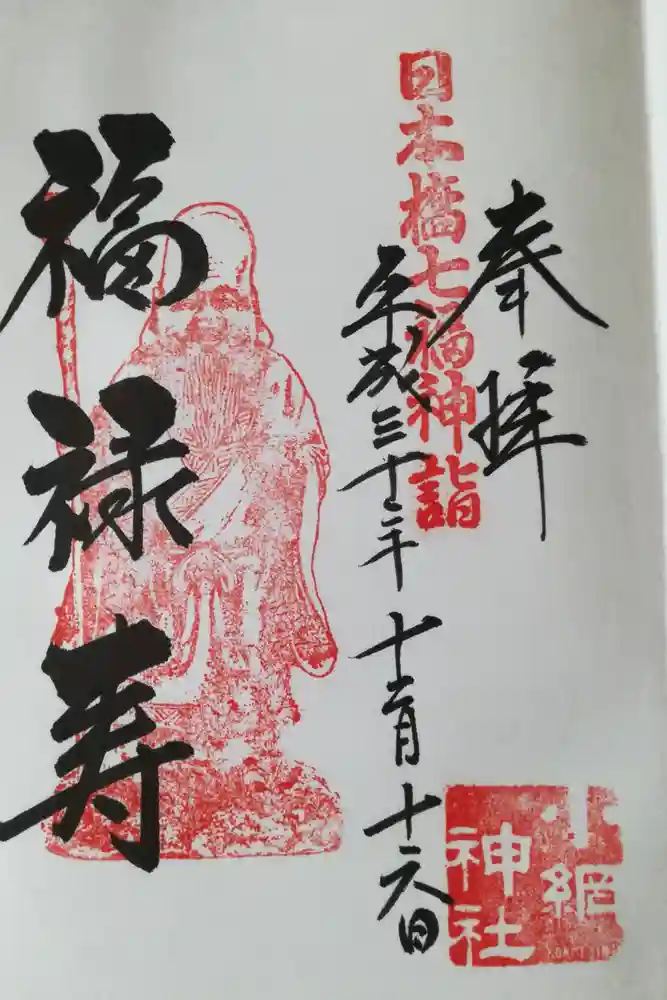 奉拝
日本橋七福神詣
平成三十年十二月十六日
福禄寿
小網
神社